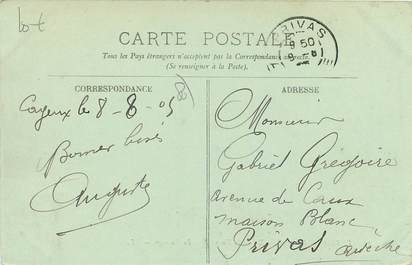 lot
CARTE POSTALE
Tous les Pays étrangers n'acceptent pas la Correspondance
(Se renseigner à la Poste).
PRIVAS
9 50
CORRESPONDANCE
ADRESSE
Cayeux le 8-8-05
Bonnes bises
Auguste
Monsieur
Gabriel Grégoire
Avenue de Coux
maison Blanc
Privas Ardèche